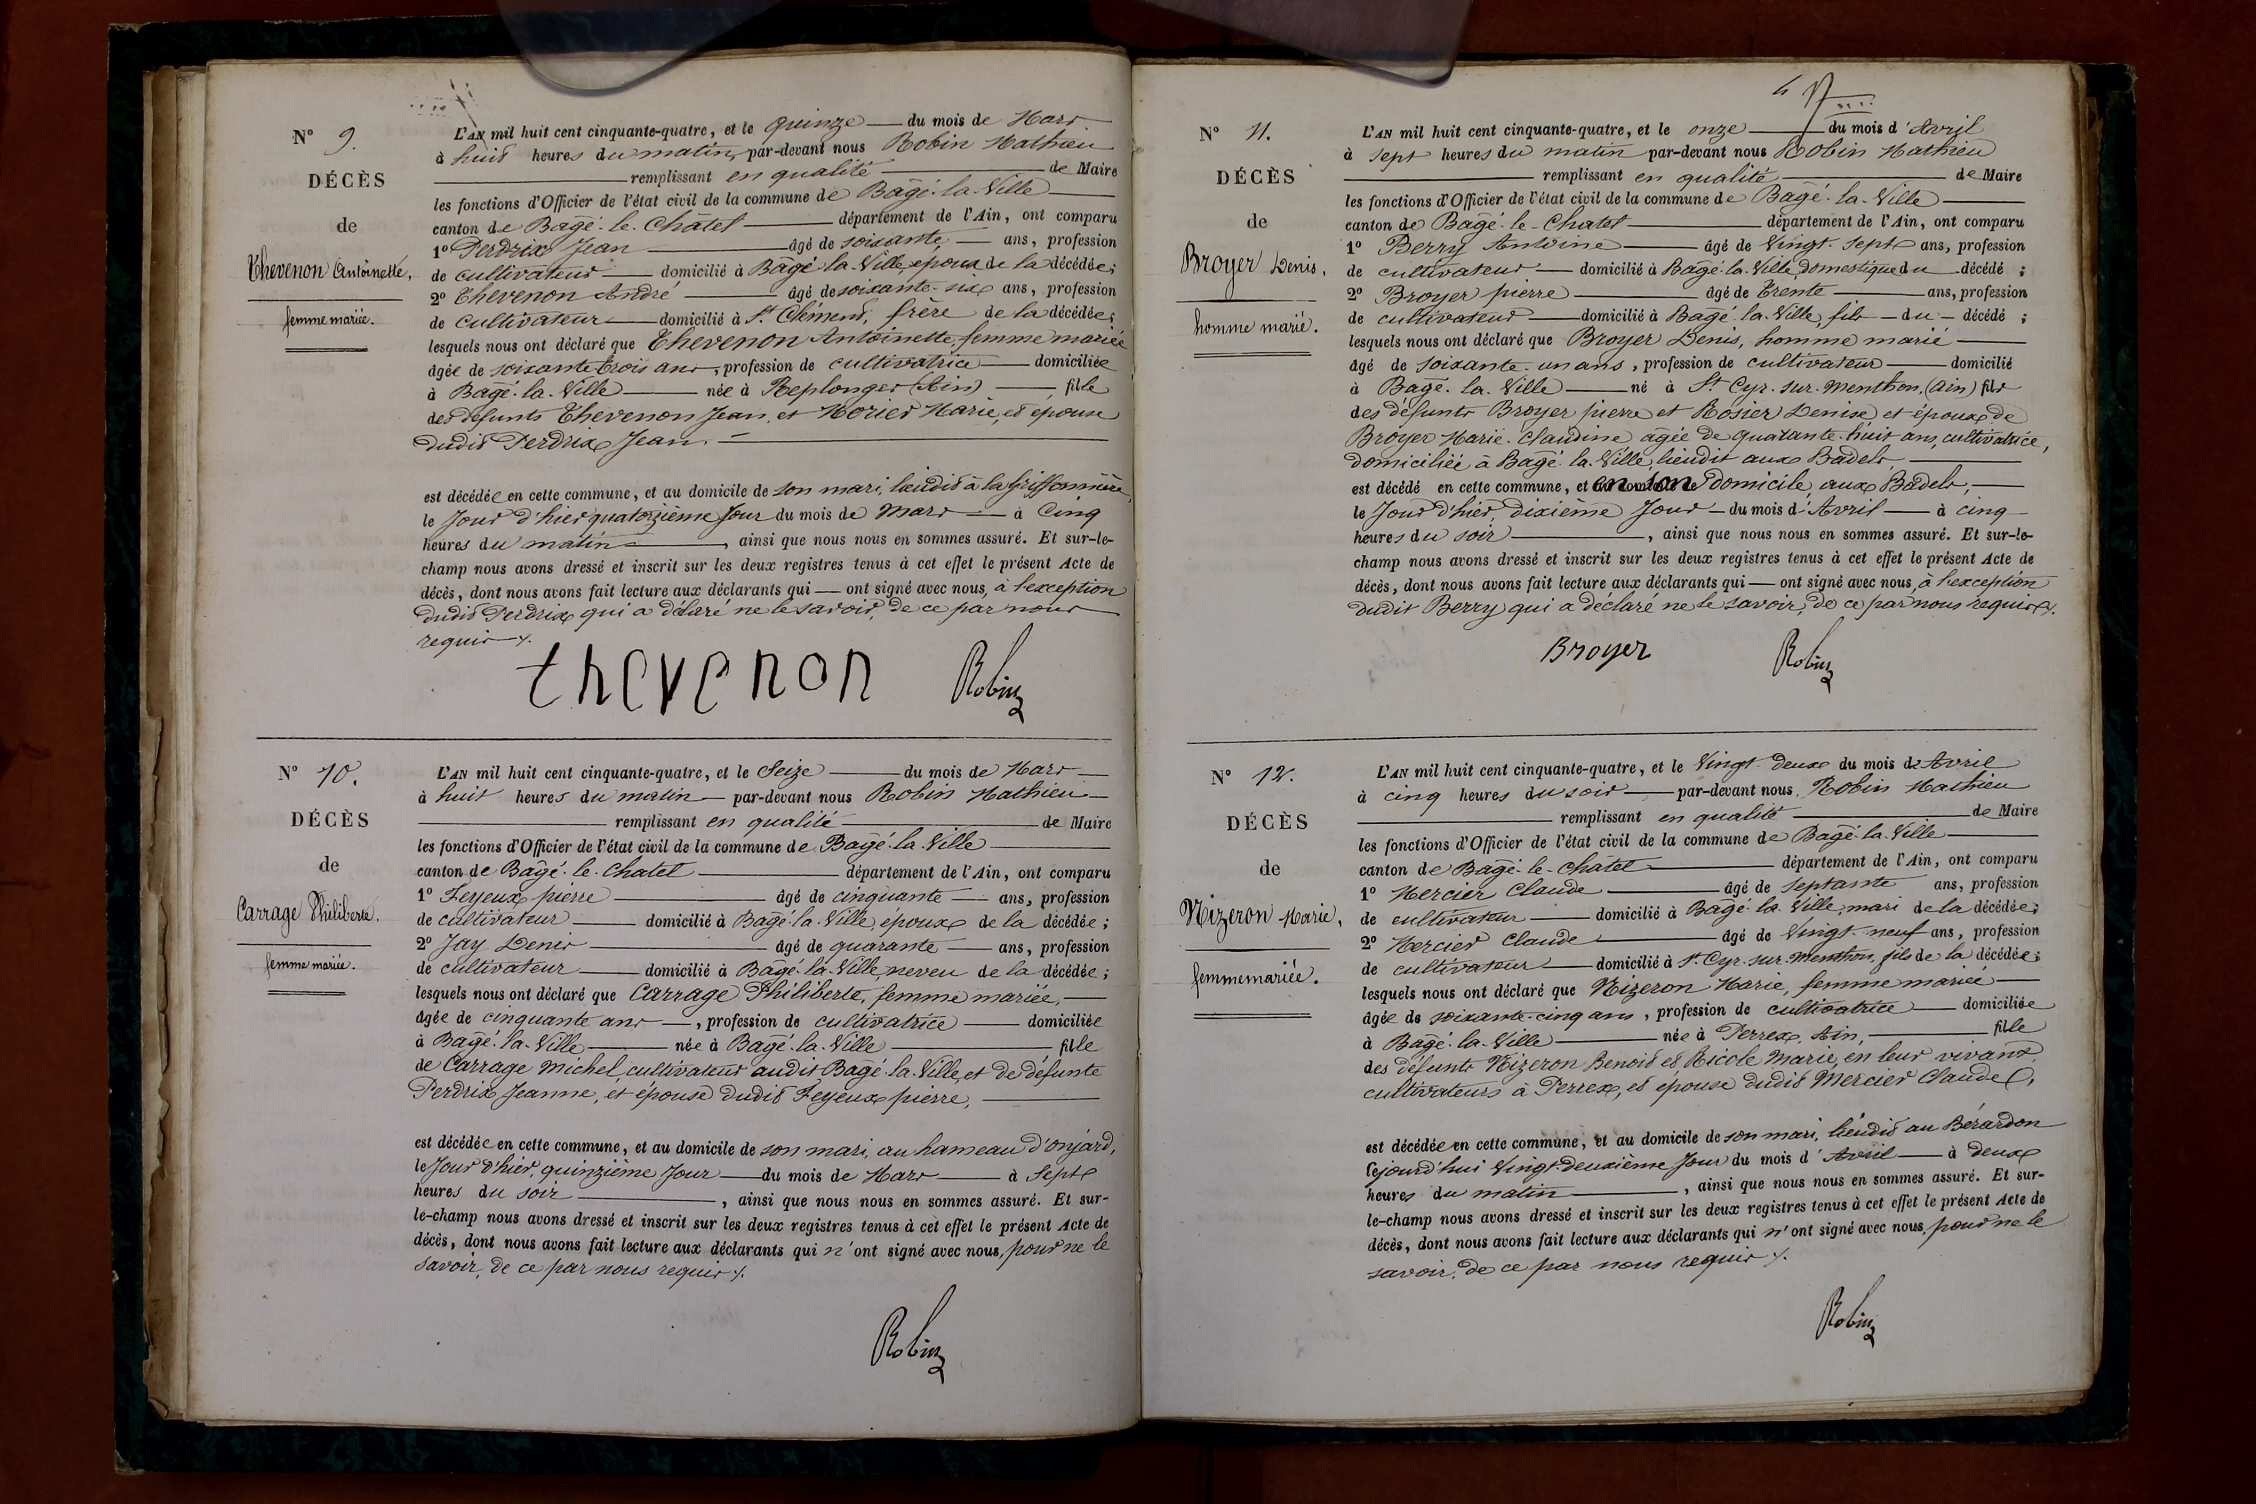 N° 9.
DÉCÈS
de
Thevenon Antoinette,
femme mariée.
L'AN mil huit cent cinquante-quatre, et le quinze du mois de Mars
à huit heures du matin, par-devant nous Robin Mathieu
remplissant en qualité de Maire
les fonctions d'Officier de l'état civil de la commune de Bâgé-la-Ville
canton de Bâgé-le-Châtel département de l'Ain, ont comparu
1° Perdrix Jean âgé de soixante ans, profession
de cultivateur domicilié à Bâgé-la-Ville, époux de la décédée;
2° Thevenon André âgé de soixante-six ans, profession
de cultivateur domicilié à St Clément, frère de la décédée;
lesquels nous ont déclaré que Thevenon Antoinette, femme mariée
âgée de soixante trois ans, profession de cultivatrice domiciliée
à Bâgé-la-Ville née à Replonges (Ain), fille
des défunts Thevenon Jean, et Morier Marie, et épouse
dudit Perdrix Jean.
est décédée en cette commune, et au domicile de son mari, lieudit à la Griffonnière,
le Jour d'hier quatorzième Jour du mois de Mars à Cinq
heures du matin, ainsi que nous nous en sommes assuré. Et sur-le-
champ nous avons dressé et inscrit sur les deux registres tenus à cet effet le présent Acte de
décès, dont nous avons fait lecture aux déclarants qui ont signé avec nous, à l'exception
dudit Perdrix qui a déclaré ne le savoir, de ce par nous
requis
thevenon Robin
N° 10.
DÉCÈS
de
Carrage Philiberte.
femme mariée.
L'AN mil huit cent cinquante-quatre, et le Seize du mois de Mars
à huit heures du matin par-devant nous Robin Mathieu
remplissant en qualité de Maire
les fonctions d'Officier de l'état civil de la commune de Bâgé-la-Ville
canton de Bâgé-le-Chatel département de l'Ain, ont comparu
1° Feyeux pierre âgé de cinquante ans, profession
de cultivateur domicilié à Bâgé-la-Ville, époux de la décédée;
2° Jay Denis âgé de quarante ans, profession
de cultivateur domicilié à Bâgé-la-Ville, neveu de la décédée;
lesquels nous ont déclaré que Carrage Philiberte, femme mariée,
âgée de cinquante ans, profession de cultivatrice domiciliée
à Bâgé-la-Ville née à Bâgé-la-Ville fille
de Carrage Michel, cultivateur audit Bâgé-la-Ville, et de défunte
Perdrix Jeanne, et épouse dudit Feyeux pierre,
est décédée en cette commune, et au domicile de son mari, au hameau d'onjard,
le Jour d'hier, quinzième Jour du mois de Mars à Sept
heures du soir, ainsi que nous nous en sommes assuré. Et sur-
le-champ nous avons dressé et inscrit sur les deux registres tenus à cet effet le présent Acte de
décès, dont nous avons fait lecture aux déclarants qui n'ont signé avec nous, pour ne le
savoir, de ce par nous requis
Robin
N° 11.
DÉCÈS
de
Broyer Denis,
homme marié.
L'AN mil huit cent cinquante-quatre, et le onze du mois d'Avril
à sept heures du matin par-devant nous Robin Mathieu
remplissant en qualité de Maire
les fonctions d'Officier de l'état civil de la commune de Bâgé-la-Ville
canton de Bâgé-le-Chatel département de l'Ain, ont comparu
1° Berry Antoine âgé de Vingt-sept ans, profession
de cultivateur domicilié à Bâgé-la-Ville, domestique du décédé;
2° Broyer pierre âgé de Trente ans, profession
de cultivateur domicilié à Bâgé-la-Ville, fils du décédé;
lesquels nous ont déclaré que Broyer Denis, homme marié
âgé de soixante-un ans, profession de cultivateur domicilié
à Bâgé-la-Ville né à St Cyr-sur-Menthon, (Ain) fils
des défunts Broyer pierre et Rosier Denise et époux de
Broyer Marie-Claudine âgée de quarante-huit ans, cultivatrice,
domiciliée à Bâgé-la-Ville, lieudit aux Badels
est décédé en cette commune, et en son domicile, aux Badels,
le Jour d'hier, dixième Jour du mois d'Avril à cinq
heures du soir, ainsi que nous nous en sommes assuré. Et sur-le-
champ nous avons dressé et inscrit sur les deux registres tenus à cet effet le présent Acte de
décès, dont nous avons fait lecture aux déclarants qui ont signé avec nous, à l'exception
dudit Berry qui a déclaré ne le savoir, de ce par nous requis
Broyer Robin
N° 12.
DÉCÈS
de
Nizeron Marie,
femme mariée.
L'AN mil huit cent cinquante-quatre, et le Vingt-deux du mois d'Avril
à cinq heures du soir par-devant nous Robin Mathieu
remplissant en qualité de Maire
les fonctions d'Officier de l'état civil de la commune de Bâgé-la-Ville
canton de Bâgé-le-chatel département de l'Ain, ont comparu
1° Mercier Claude âgé de septante ans, profession
de cultivateur domicilié à Bâgé-la-Ville, mari de la décédée;
2° Mercier Claude âgé de Vingt-neuf ans, profession
de cultivateur domicilié à St Cyr-sur-Menthon, fils de la décédée;
lesquels nous ont déclaré que Nizeron Marie, femme mariée
âgée de soixante-cinq ans, profession de cultivatrice domiciliée
à Bâgé-la-Ville née à Perrex, Ain, fille
des défunts Nizeron Benoit et Nicole Marie, en leur vivant,
cultivateurs à Perrex, et épouse dudit Mercier Claude,
est décédée en cette commune, et au domicile de son mari, lieudit au Bérardon
cejourd'hui Vingt-deuxième Jour du mois d'Avril à deux
heures du matin, ainsi que nous nous en sommes assuré. Et sur-
le-champ nous avons dressé et inscrit sur les deux registres tenus à cet effet le présent Acte de
décès, dont nous avons fait lecture aux déclarants qui n'ont signé avec nous, pour ne le
savoir, de ce par nous requis
Robin